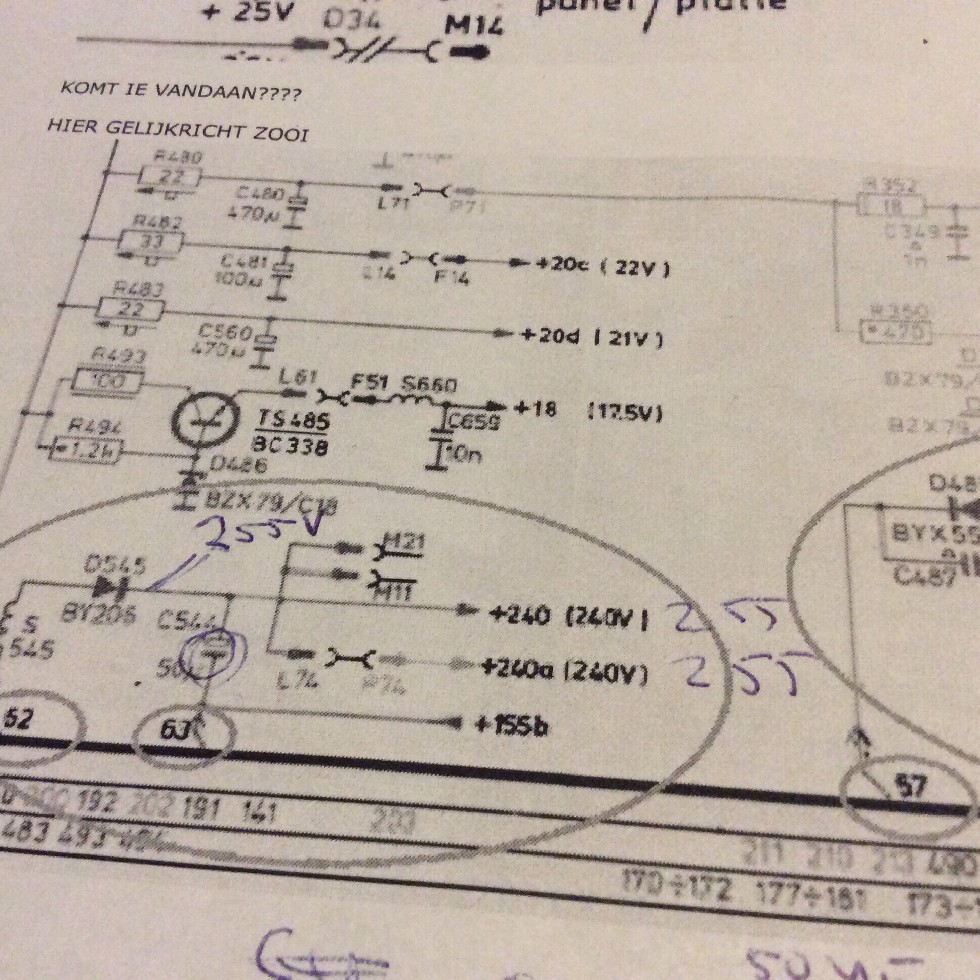 + 25V D34 M14
KOMT IE VANDAAN????
HIER GELIJKRICHT ZOOI
R480
22
C480
470µ
L71
R352
18
C349
1n
R482
33
C481
100µ
F14
+20c ( 22V )
R483
22
C560
470µ
+20d ( 21V )
R350
470
R493
100
L61
F51 S660
+18 (17.5V)
C659
10n
TS485
BC338
R494
1.2k
D486
BZX79/C18
BZX79/
BZX79
255V
D545
BY206
C544
M21
M11
+240 (240V) 255
S
545
L74
+240a (240V) 255
+155b
BYX55
C487
62
63
57
192 202 191 141 203
483 493 494
211 210 213 490
170÷172 177÷181